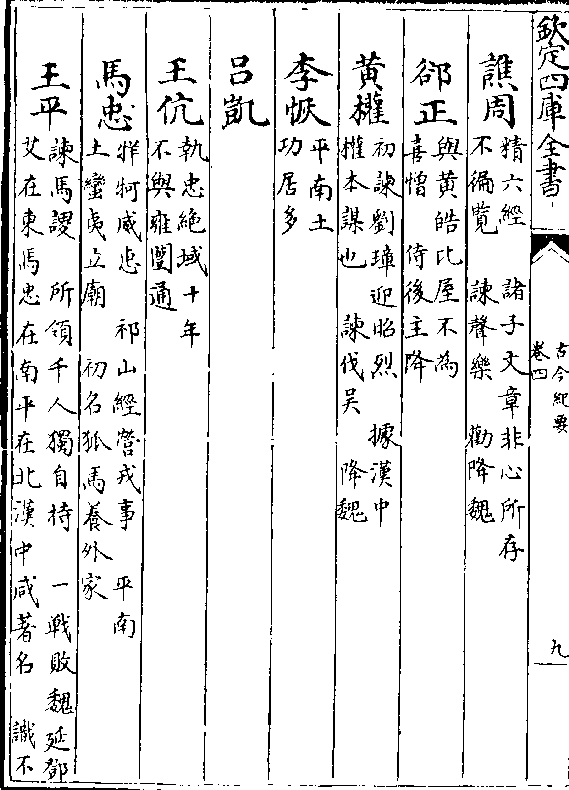 欽定四庫全書
古今紀要
卷四
九
譙周
精六經　諸子文章非心所存
不徧覽　諫聲樂　勸降魏
郤正
與黃皓比屋不為
喜憎　侍後主降
黃權
初諫劉璋迎昭烈　據漢中
權本謀也　諫伐吳　降魏
李恢
平南土
功居多
呂凱
王伉
執忠絕域十年
不與雍闓通
馬忠
牂牁威忠　祁山經營戎事　平南
土蠻夷立廟　初名狐馬養外家
王平
諫馬謖　所領千人獨自持　一戰敗魏延鄧
艾在東馬忠在南平在北漢中咸著名　識不